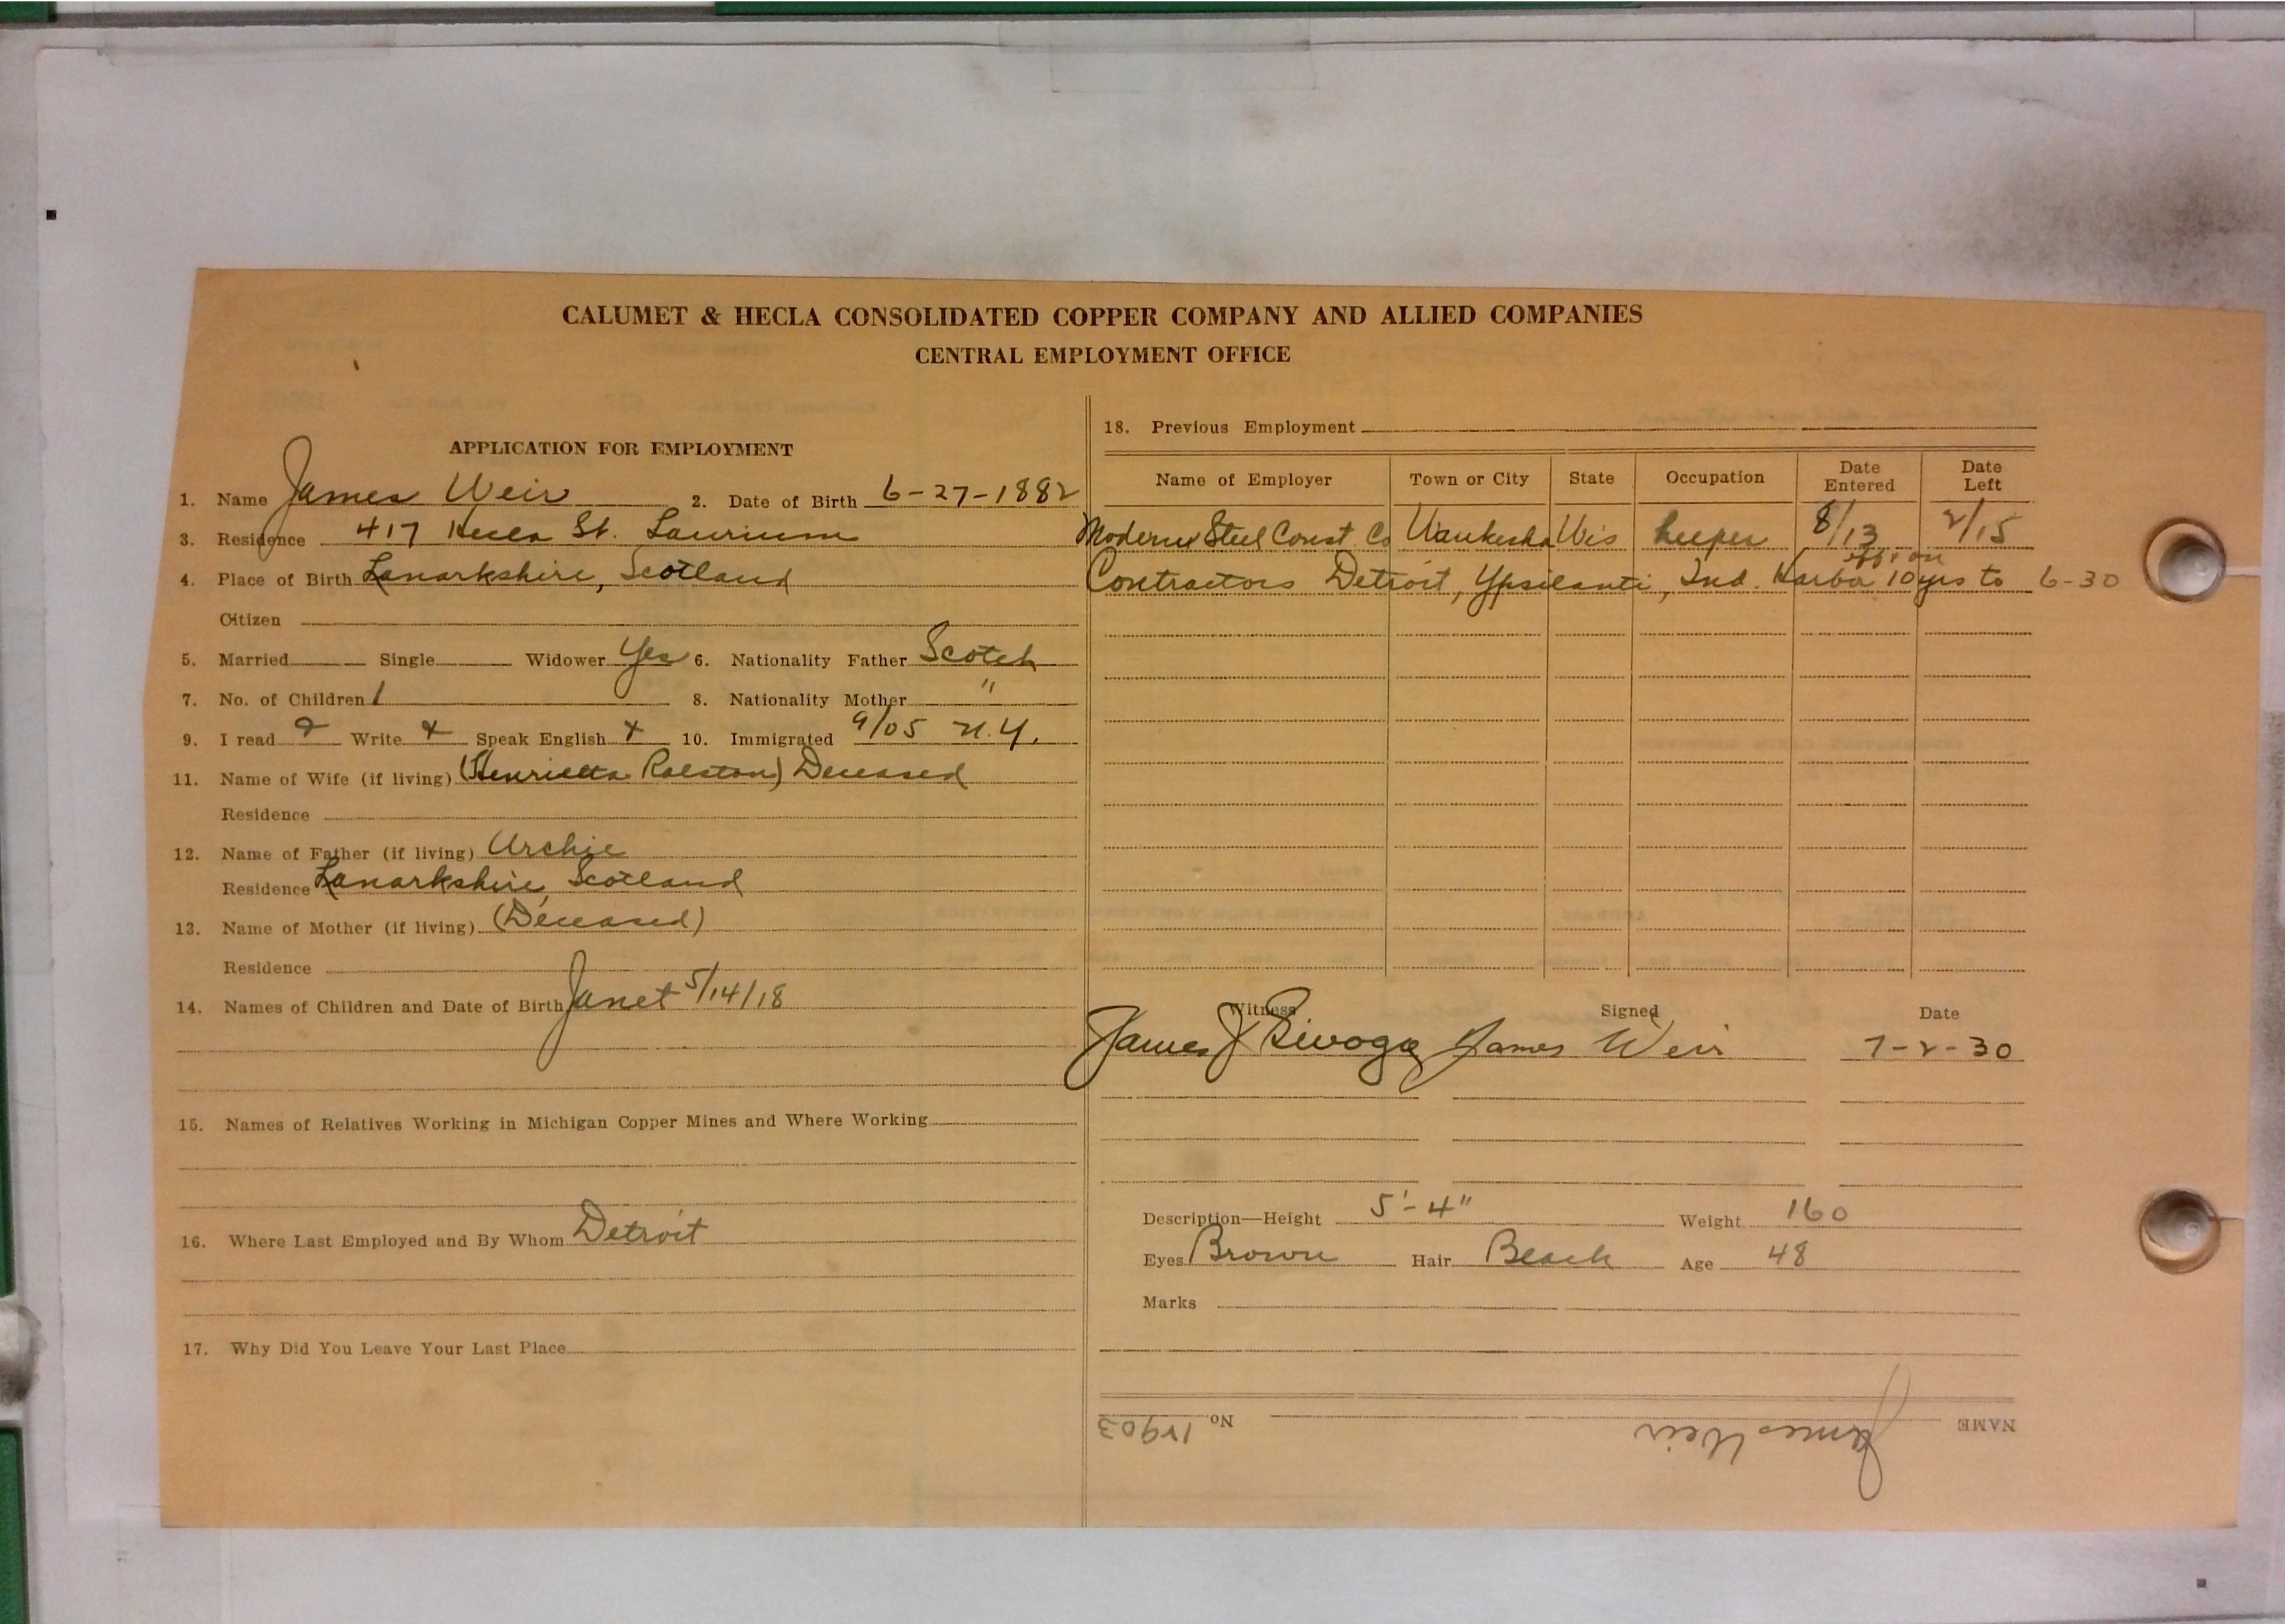 CALUMET & HECLA CONSOLIDATED COPPER COMPANY AND ALLIED COMPANIES
CENTRAL EMPLOYMENT OFFICE
APPLICATION FOR EMPLOYMENT
1. Name James Weir 2. Date of Birth 6-27-1882
3. Residence 417 Hecla St. Laurium
4. Place of Birth Lanarkshire, Scotland
Citizen
5. Married Single Widower Yes 6. Nationality Father Scotch
7. No. of Children 1 8. Nationality Mother "
9. I read Write Speak English 10. Immigrated 9/05 N.Y.
11. Name of Wife (if living) (Henrietta Ralston) Deceased
Residence
12. Name of Father (if living) Archie
Residence Lanarkshire, Scotland
13. Name of Mother (if living) (Deceased)
Residence
14. Names of Children and Date of Birth Janet 5/14/18
15. Names of Relatives Working in Michigan Copper Mines and Where Working
16. Where Last Employed and By Whom Detroit
17. Why Did You Leave Your Last Place
18. Previous Employment
Name of Employer Town or City State Occupation Date Entered Date Left
Modern Steel Const. Co Waukesha Wis 8/13 2/15
off & on
Contractors Detroit, Ypsilanti, Ind. Harbor 10 yrs to 6-30
Witness Signed Date
James J James Weir 7-2-30
Description—Height 5'-4" Weight 160
Eyes Brown Hair Black Age 48
Marks
NAME James Weir No. 12903